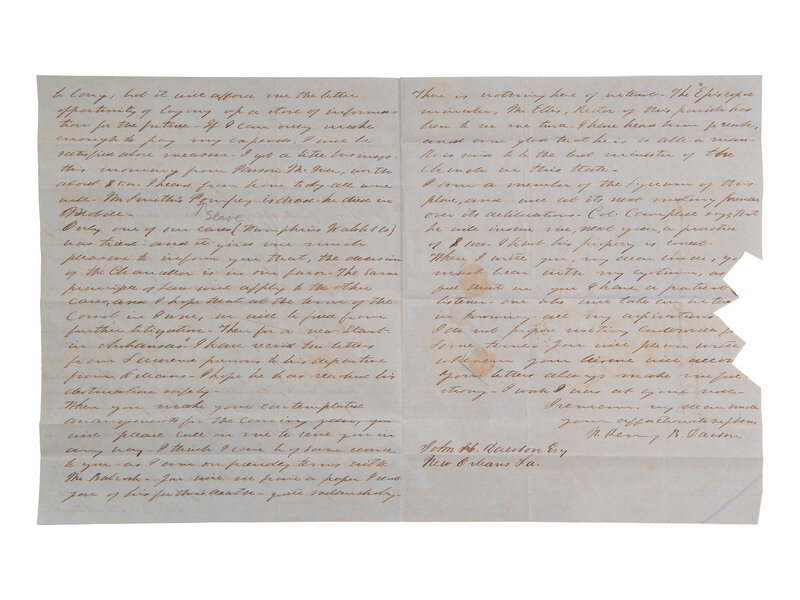 be long; but it will afford me the better
opportunity of laying up a store of informa-
tion for the future - If I can only make
enough to pay my expenses, I will be
satisfied above measure - I got a letter
this morning from Parson
about $ I heard from home today all are
well - Mr Smith's Pompey is dead - he died in
Mobile -
Slave
Only one of our cases (Humphries Walsh & Co)
was tried - and it gives me much
pleasure to inform you that, the decision
of the Chancellor is in our favor - The same
principle of Law will apply to the other
cases, and I hope that at the term of the
Court in June, we will be freed from
further litigation - Then for a new start
in I have received two letters
from Lawrence previous to his departure
from Orleans - I hope he has reached his
destination safely -
When you make your contemplated
arrangements for the coming year, you
will please call on me to serve you in
any way - I think I can be of some service
to you - as I am on friendly terms with
Mr You will see from a paper I send
you of his death - quite melancholy -
There is nothing here of interest - The Episcopal
minister, Mr Ellis, Rector of this parish has
been to see me twice. I have heard him preach,
and am glad that he is so able a man -
He is said to be the best minister of the
Church in this State -
I am a member of the Lyceum of this
place, and will at its next meeting preside
over its deliberations - Col. Campbell says that
he will insure me, next year, a practice
of $ I hope his prophecy is correct -
When I write you, my dear uncle, you
must bear with my egotism, as
feel that in you I have a patient
listener - one who will take an interest
in knowing all my aspirations
I do not
some time - You will please write
whenever your leisure will allow
Your letters always make me feel
strong - I wish I was at your side -
I remain, my dear uncle
your affectionate nephew
Henry R. Dawson
John H. Dawson Esq
New Orleans La.